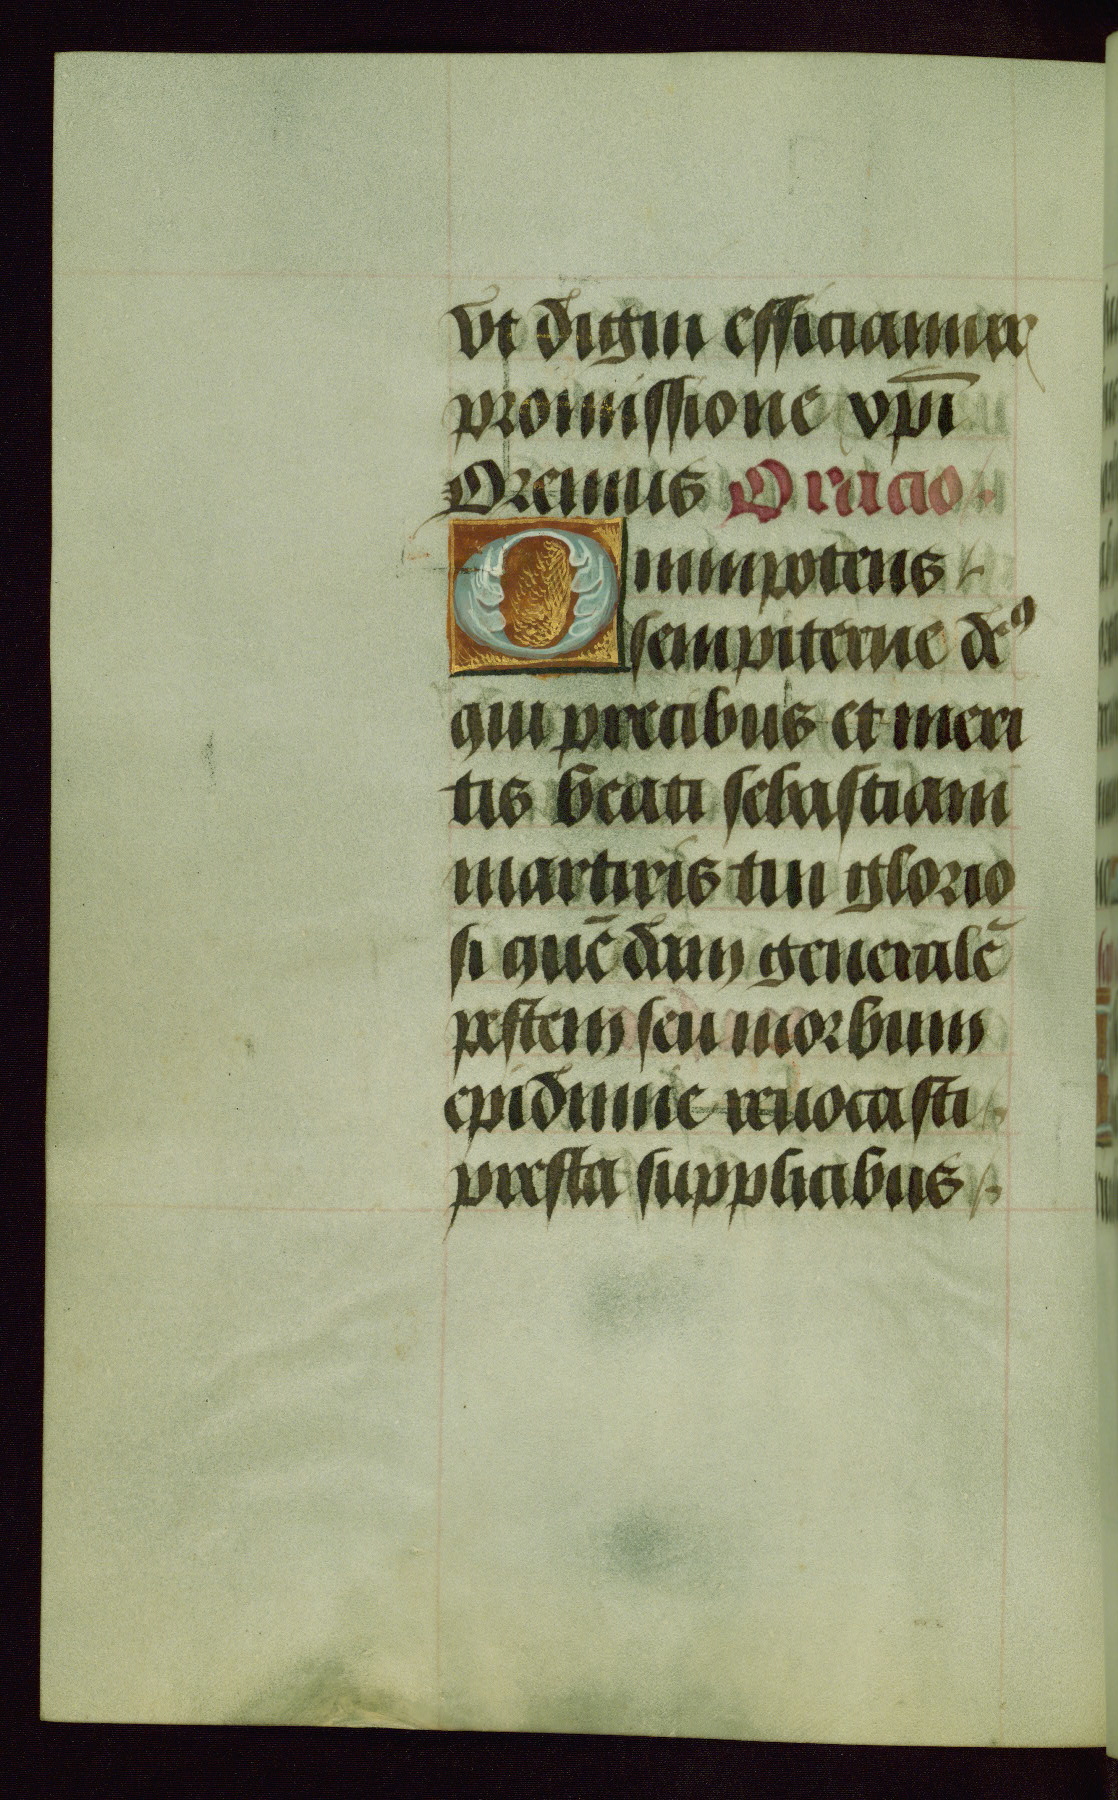 vt digni efficiamur
promissione xpi̅
Oremus Oracio
Omnipotens
sempiterne deꝰ
qui precibus et meri
tis beati sebastiani
martiris tui glorio
si que̅dam generale̅
pestem seu morbum
epidimie reuocasti
presta supplicibus